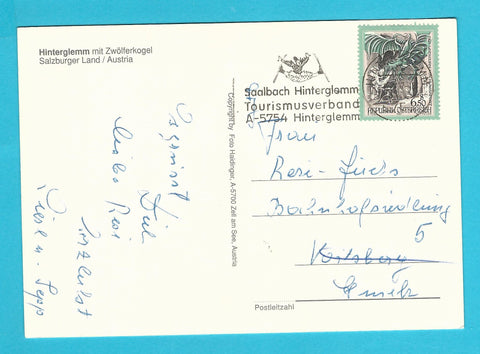 Hinterglemm mit Zwölferkogel
Salzburger Land / Austria
Saalbach Hinterglemm
Tourismusverband
A-5754 Hinterglemm
6.50
REPUBLIK ÖSTERREICH
Copyright by Foto Haidinger, A-5700 Zell am See, Austria
Dich
liebe Resi
herzlichst
u. Sepp
Frau
Resi Fuchs
Bahnhofsiedlung
5
Postleitzahl